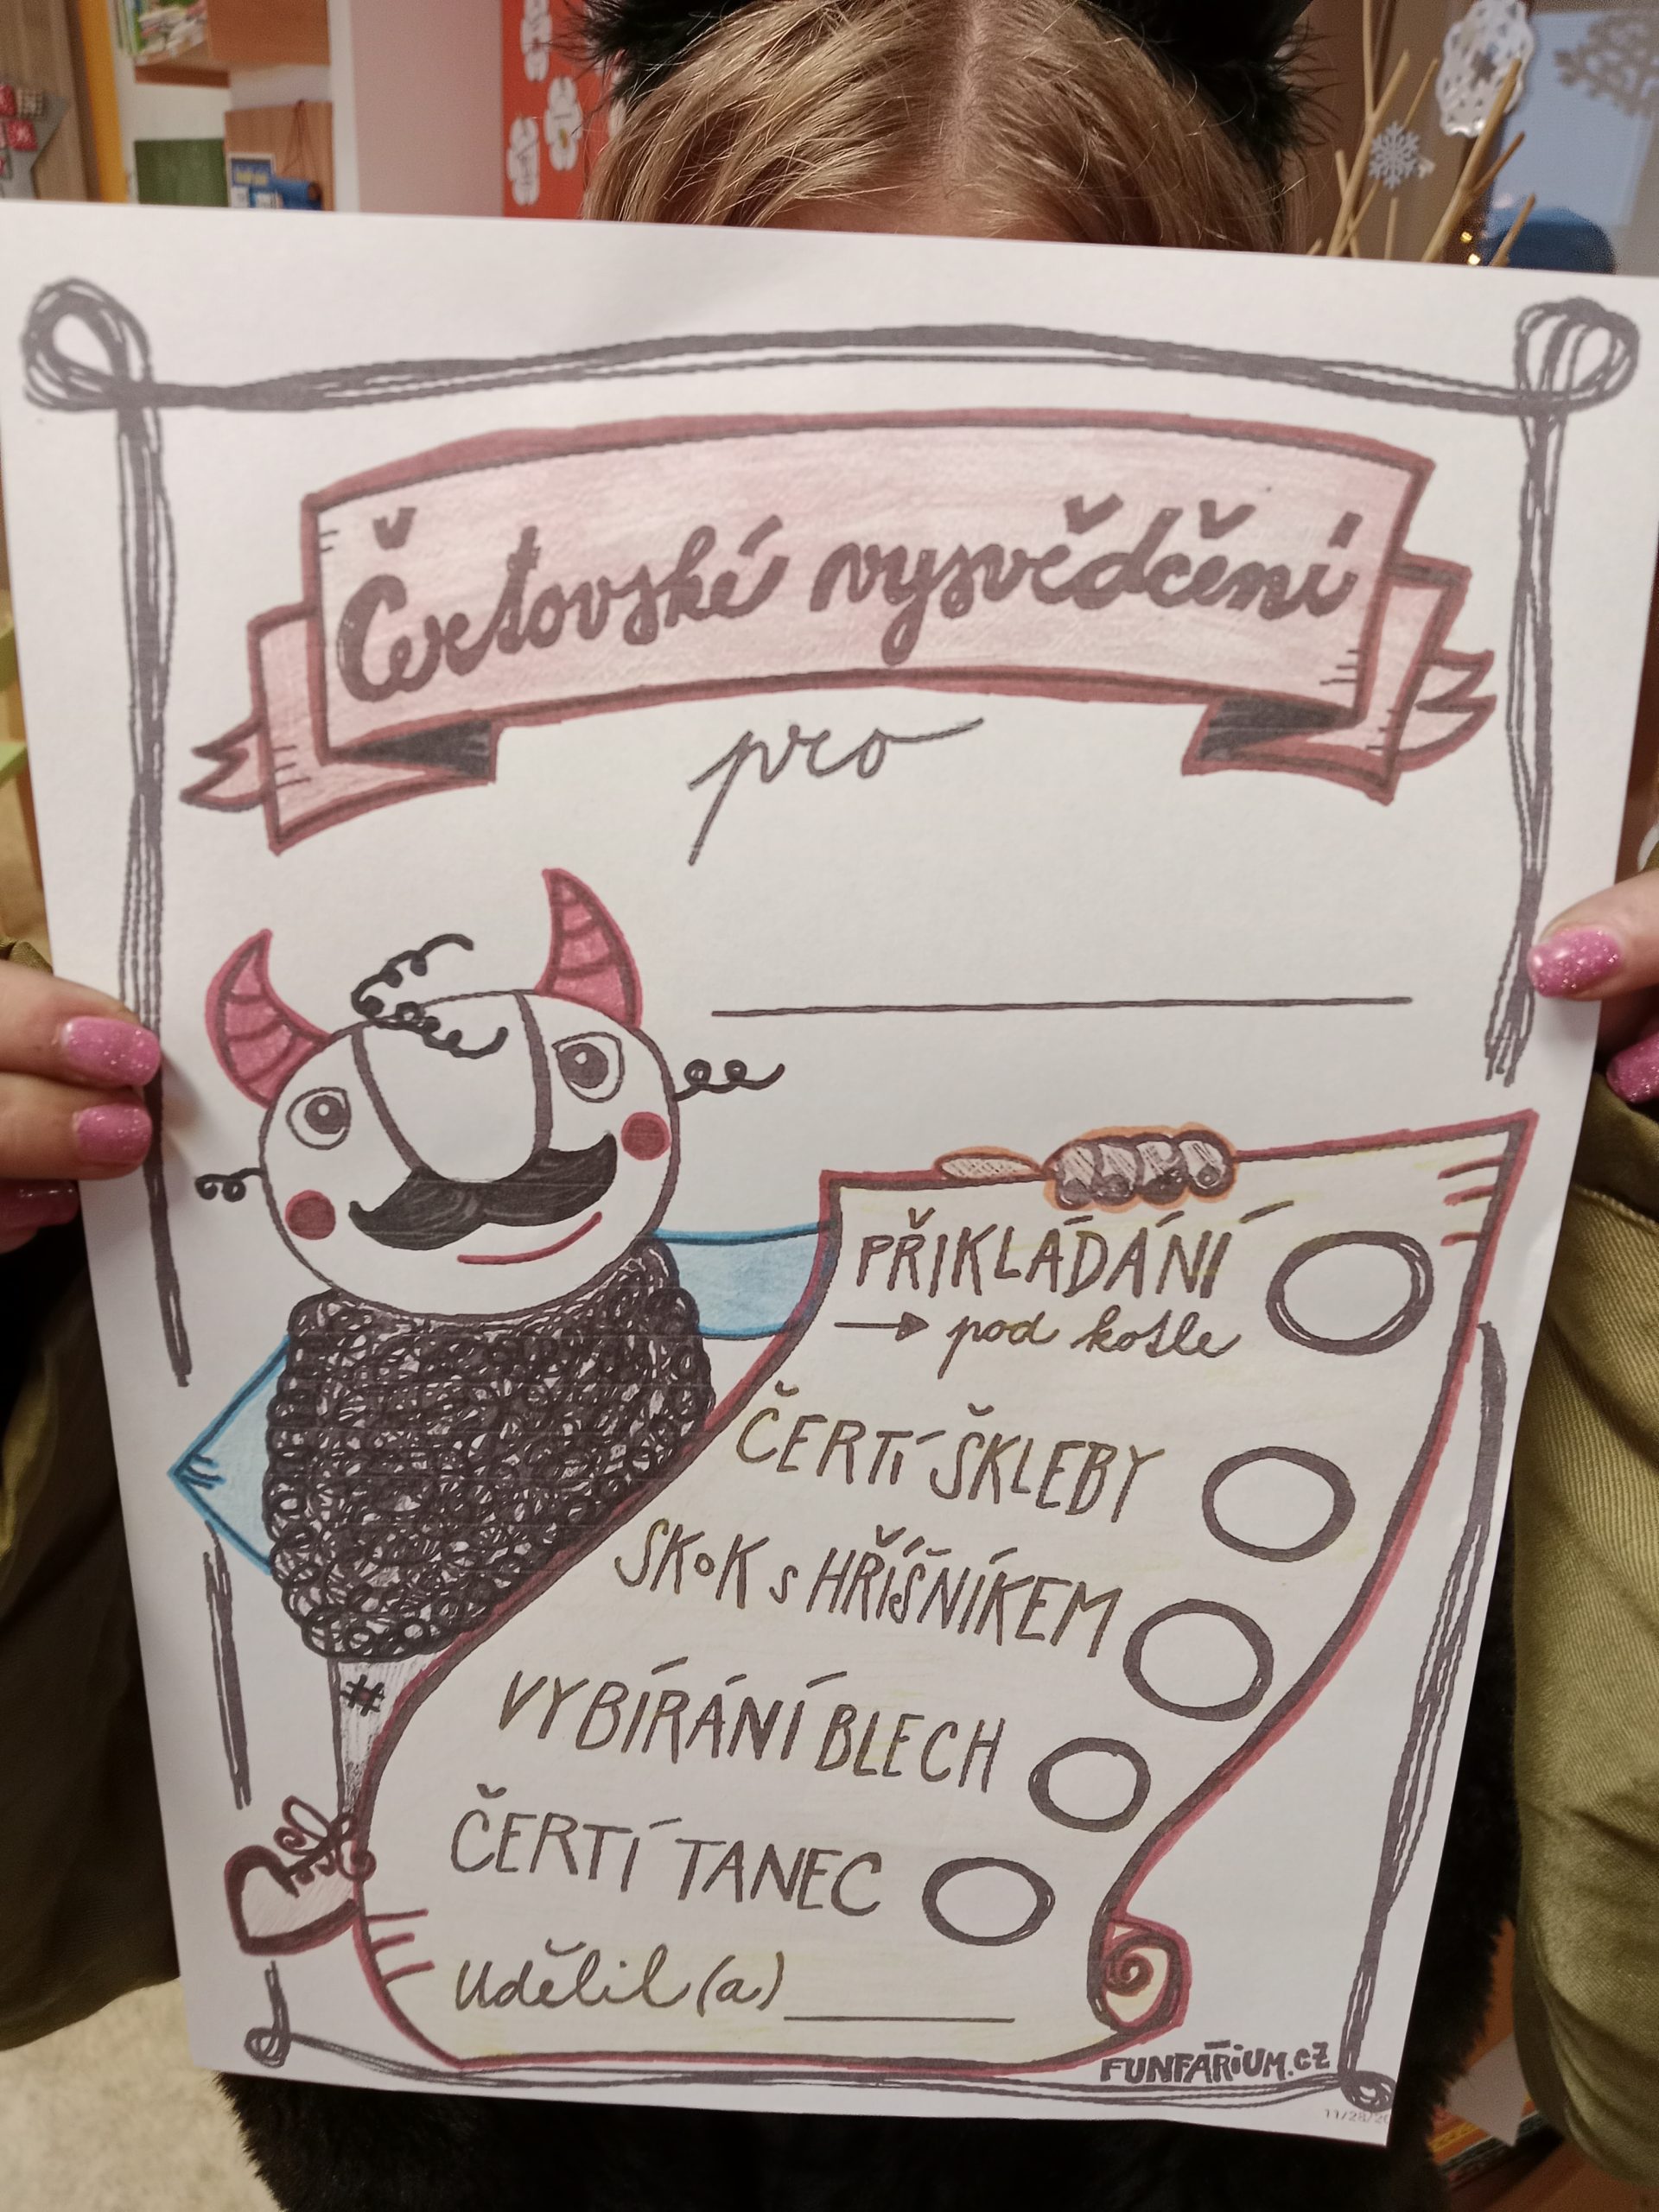 Čertovské vysvědčení
pro
PŘIKLÁDÁNÍ
→ pod kotle
ČERTÍ ŠKLEBY
SKOK s HŘÍŠNÍKEM
VYBÍRÁNÍ BLECH
ČERTÍ TANEC
Udělil(a)
FUNFÁRIUM.CZ
11/28/20